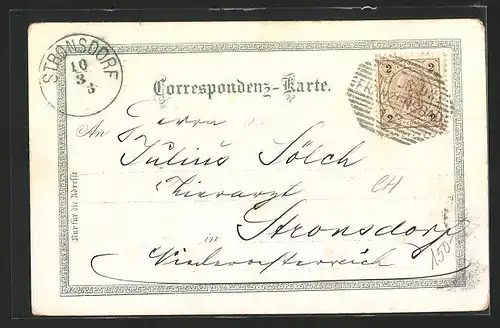 STRONSDORF
10
3
3
Correspondenz-Karte.
2 2
2 2
An Herrn
Julius Sölch
Tierarzt
CH
Stronsdorf
in
Niederoesterreich
150
Nur für die Adresse